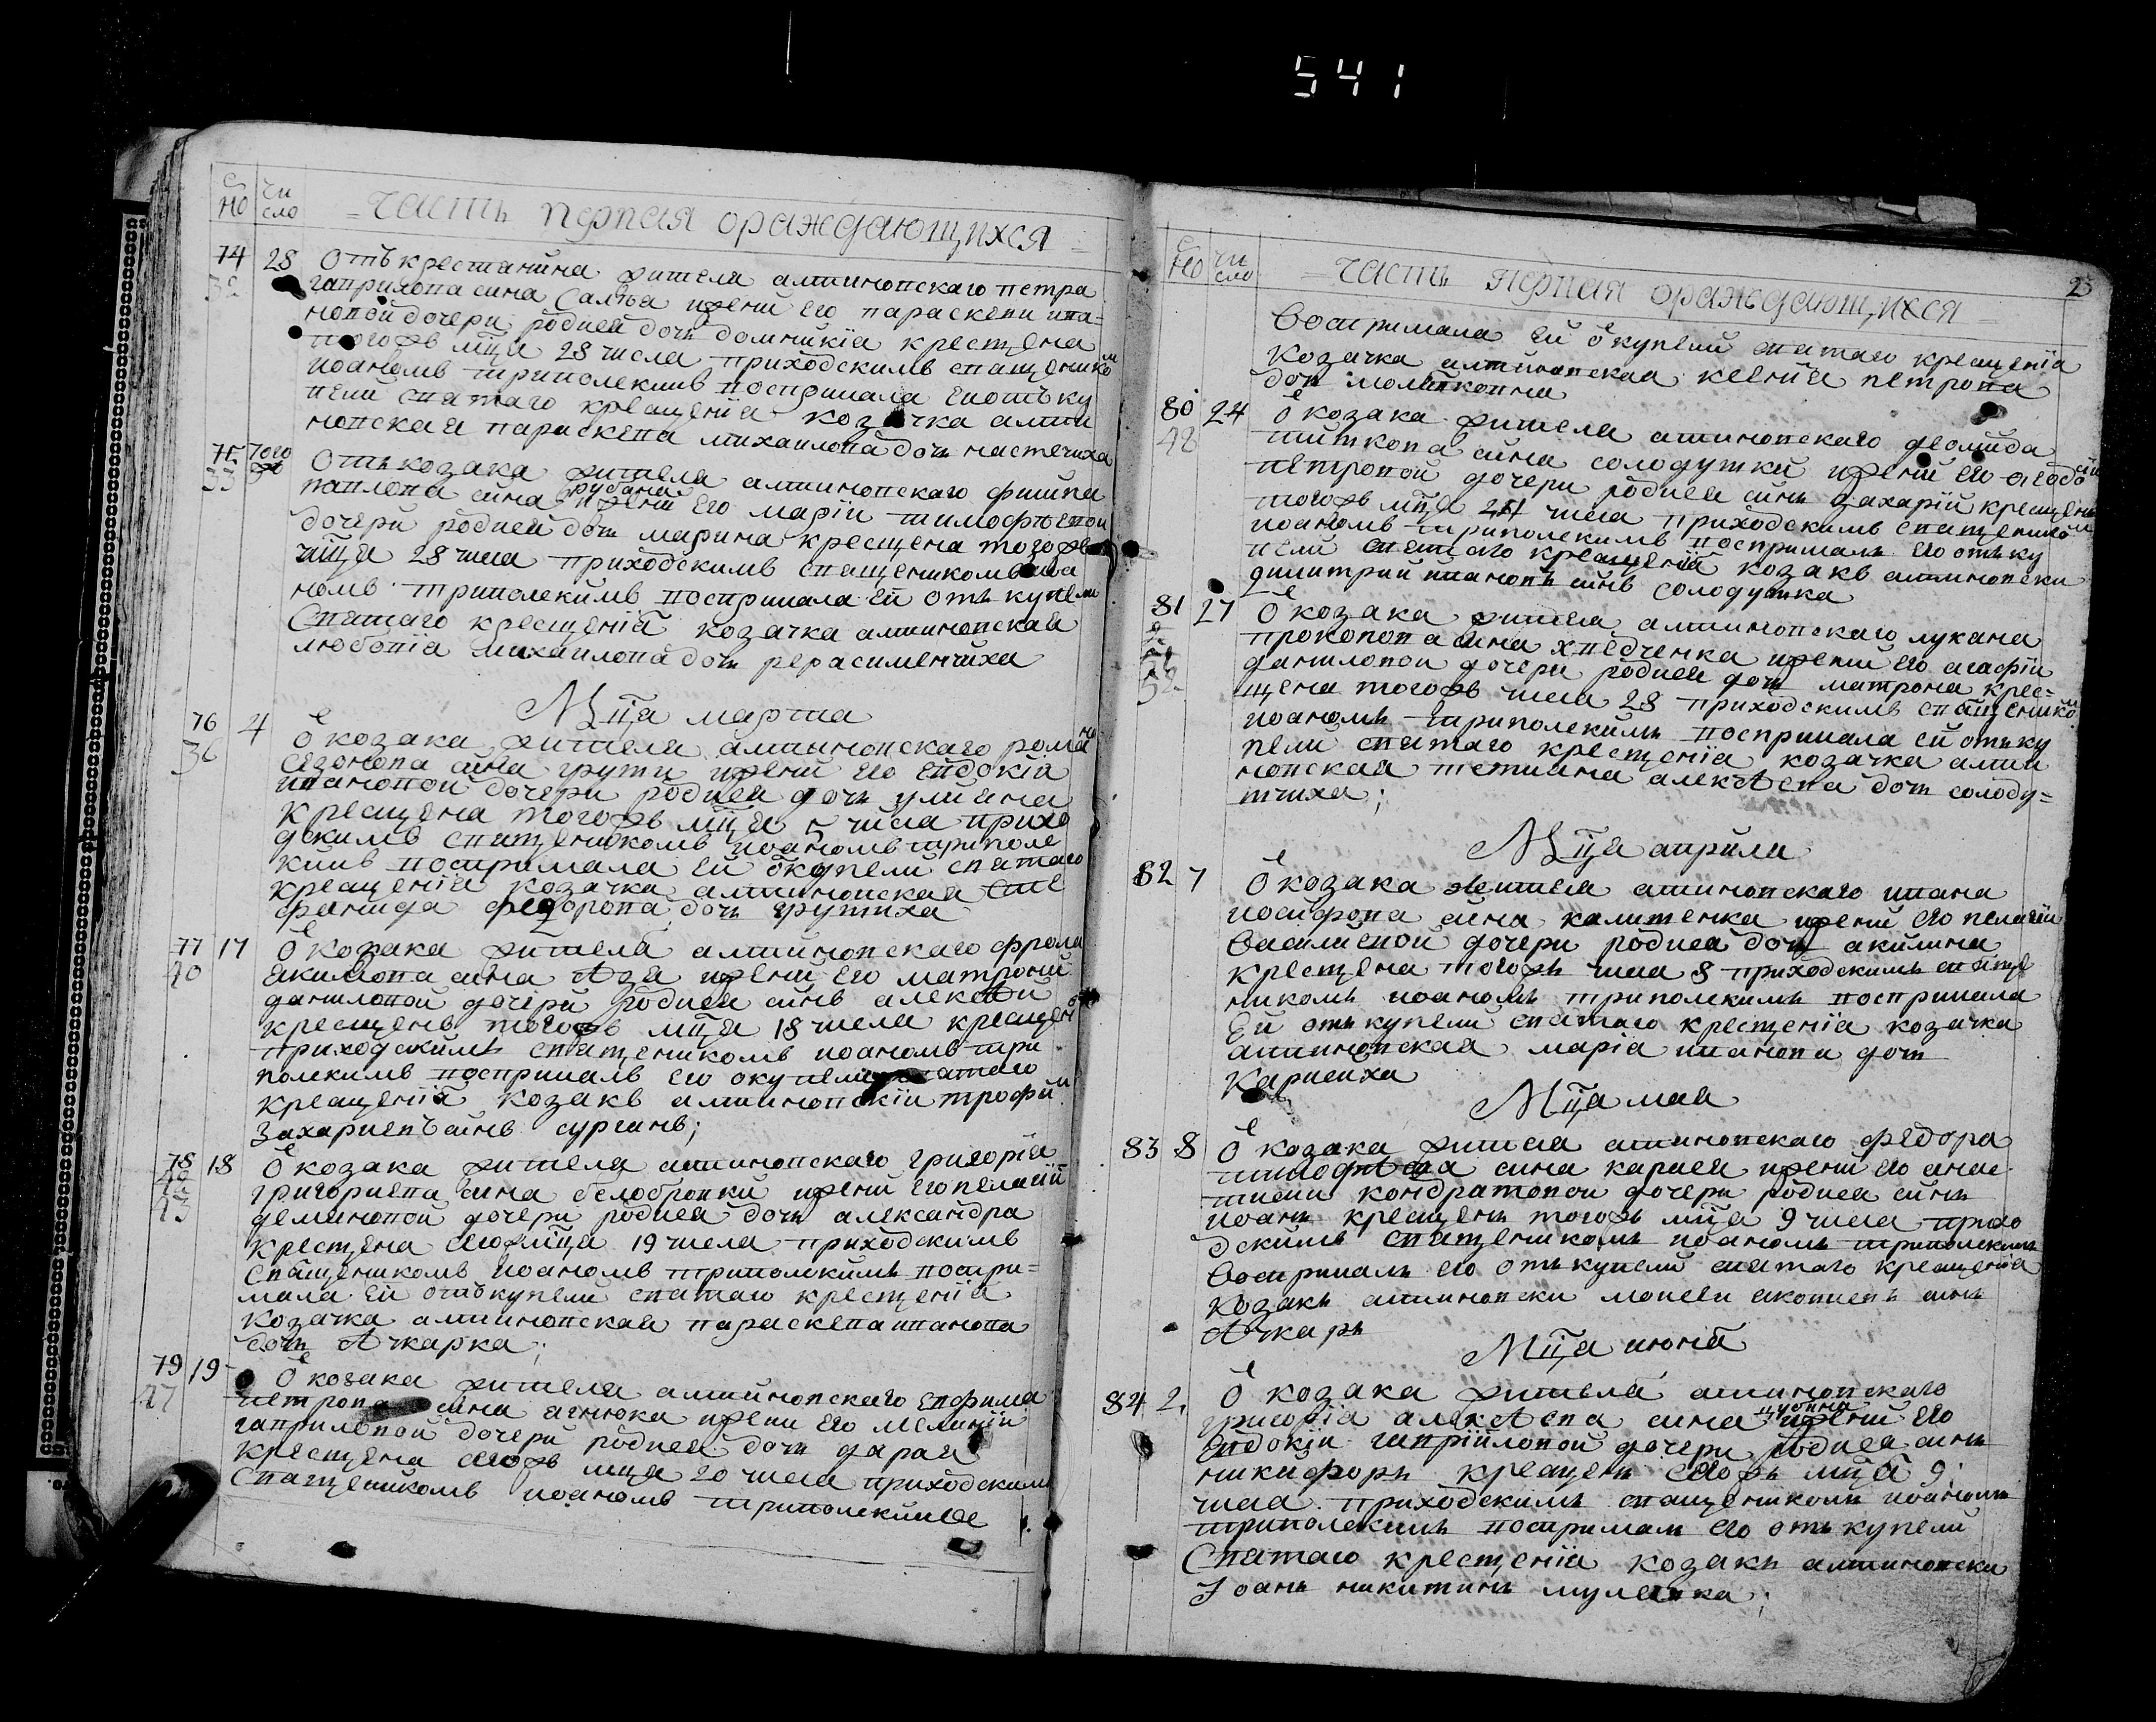 541
но число
часть первая ораждающихся
74 28 Отъ крестянина жителя алтиновскаго петра
гаврилова сина Салѣа ижени его параскеви ива=
новой дочери родися дочь домникіа крестцена
тогожъ мца 28 числа приходскимъ сващеником
иоаномъ триполскимъ воспримала еи отъ ку
пели святаго крещеніа козачка алти
новская параскева михаилова дочь настечиха
75 того ж Отъ козака жителя алтиновскаго филипа
павлова сина рубана ижени его маріи тимофѣевои
дочери родися дочь марина крестцена тогожъ
мца 28 числа приходскимъ сващеникомъ иоа
номъ триполскимъ воспримала еи отъ купели
Святаго крестценіа козачка алтиновская
любовіа михаилова дочь герасименчиха
Мца марта
76 4 Ѿ козака жителя алтиновскаго романа
сина грути ижени его евдокіа
ивановой дочери родися дочь улиана
крестцена тогожъ мца 5 числа прихо
дскимъ сватценикомъ иоаномъ триполс
кимъ воспримала еи ѿ купели святаго
крещеніа козачка алтиновская сте
фанида федорова дочь грутиха
77 17 Ѿ козака жителя алтиновскаго фрола
екимова сина ижени его матрони
даниловой дочери родися синъ алексѣй
крестценъ тогожъ мца 18 числа крестценъ
приходскимъ сватценикомъ иоаномъ три
полскимъ воспрималъ его о купели святаго
крещеніа козакъ алтиновскіи трофим
Захариевъ синъ сурганъ;
78 18 Ѿ козака жителя алтиновскаго григоріа
григориева сина белобровки ижени его пелагіи
деминовой дочери родися дочь александра
крестцена сегожъ мца 19 числа приходскимъ
сващеникомъ иоаномъ триполскимъ воспри=
мала еи отъ купели святаго крестценіа
козачка алтиновская параскева иванова
дочь ѣчкарка;
79 19 Ѿ козака жителя алтиновскаго ефима
петрова сина агнюка ижени его меланіи
гавриловой дочери родися дочь дарая
крестцена сегожъ мца 20 числа приходскимъ
сватцеником иоаномъ триполскимъ
23
но число
часть первая ораждающихся
воспримала ей ѿ купели святаго крещеніа
козачка алтиновская ксеніа петрова
дочь
80 24 Ѿ козака жителя алтиновскаго деомида
титкова сина солодушки ижени его феодосіи
петровой дочери родися синъ захарій крещенъ
тогожъ мца 24 числа приходскимъ сватцеником
иоаномъ триполскимъ воспрималъ его отъ ку
пели святаго крещеніа козакъ алтиновски
димитрий ивановъ синъ солодушка
81 27 Ѿ козака жителя алтиновскаго лукана
прокопова сина хведченка ижени его агафіи
даниловой дочери родися дочь матрона крес=
щена тогожъ числа 28 приходскимъ сващеником
иоаномъ триполскимъ воспримала ей отъ ку
пели святаго крестценіа козачка алти
новская тетиана алексѣева дочь солоду=
тчиха;
Мца априли
82 7 Ѿ козака жителя алтиновскаго ивана
иосифова сина калитенка ижени его пелагіи
василиевой дочери родися дочь акилина
крестцена тогожъ числа 8 приходскимъ сватце
никомъ иоаномъ триполскимъ воспримала
Ей отъ купели святаго крестценіа козачка
алтиновская маріа иванова дочь
Карпеиха
Мца маи
83 8 Ѿ козака жителя алтиновскаго федора
тимофѣева сина карпея ижени его анас
тасии кондратовои дочери родися синъ
иоанъ крестценъ тогожъ мца 9 числа прихо
дскимъ сватценикомъ иоаномъ триполскимъ
воспрималъ его отъ купели святаго крещеніа
Козакъ алтиновски моисеи яковлевъ синъ
ѣчкарь
Мца июніа
84 2 Ѿ козака жителя алтиновскаго
григоріа алексѣева сина цубина ижени его
евдокіи гавриіловой дочери родися синъ
никифоръ крещенъ сегожъ мца 9
числа приходскимъ сващеникомъ иоаномъ
триполскимъ воспрималъ его отъ купели
Святаго крестценіа козакъ алтиновски
Іоанъ никитинъ мулечка;